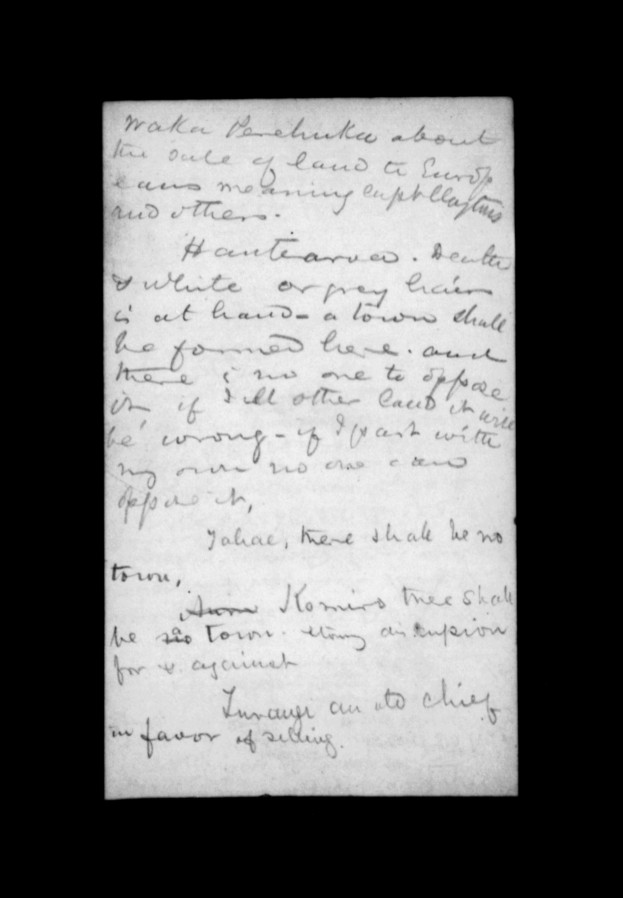 Waka Perehuka about
the sale of land to Europ
eans meaning Capt Clayton's
and others.
Hautearoa. Death
& white or grey hairs
is at hand - a town shall
be formed here. and
there is no one to oppose
it, if I sell other land it will
be wrong - if I part with
my own no one can
oppose it,
Tahae, there shall be no
town,
Komiro there shall
be a town. Stormy discussion
for & against
an old chief
in favor of selling.